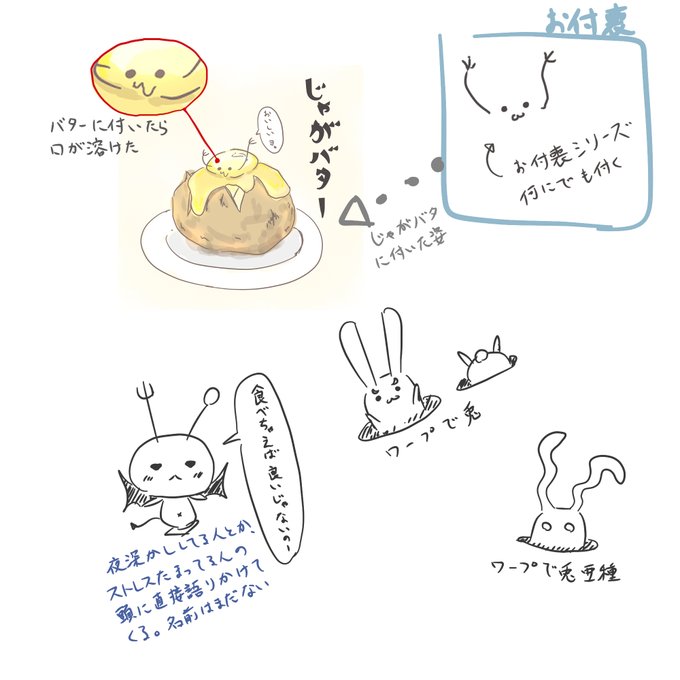 お付裏
お付裏シリーズ
何にでも付く
じゃがバター
おいしいヨ。
バターに付いたら
口が溶けた
じゃがバタ
に付いた姿
ワープで兎
食べちゃえば良いじゃないのー
ワープで兎亜種
夜深かししてる人とか、
ストレスたまってる人の
頭に直接語りかけて
くる。名前はまだない